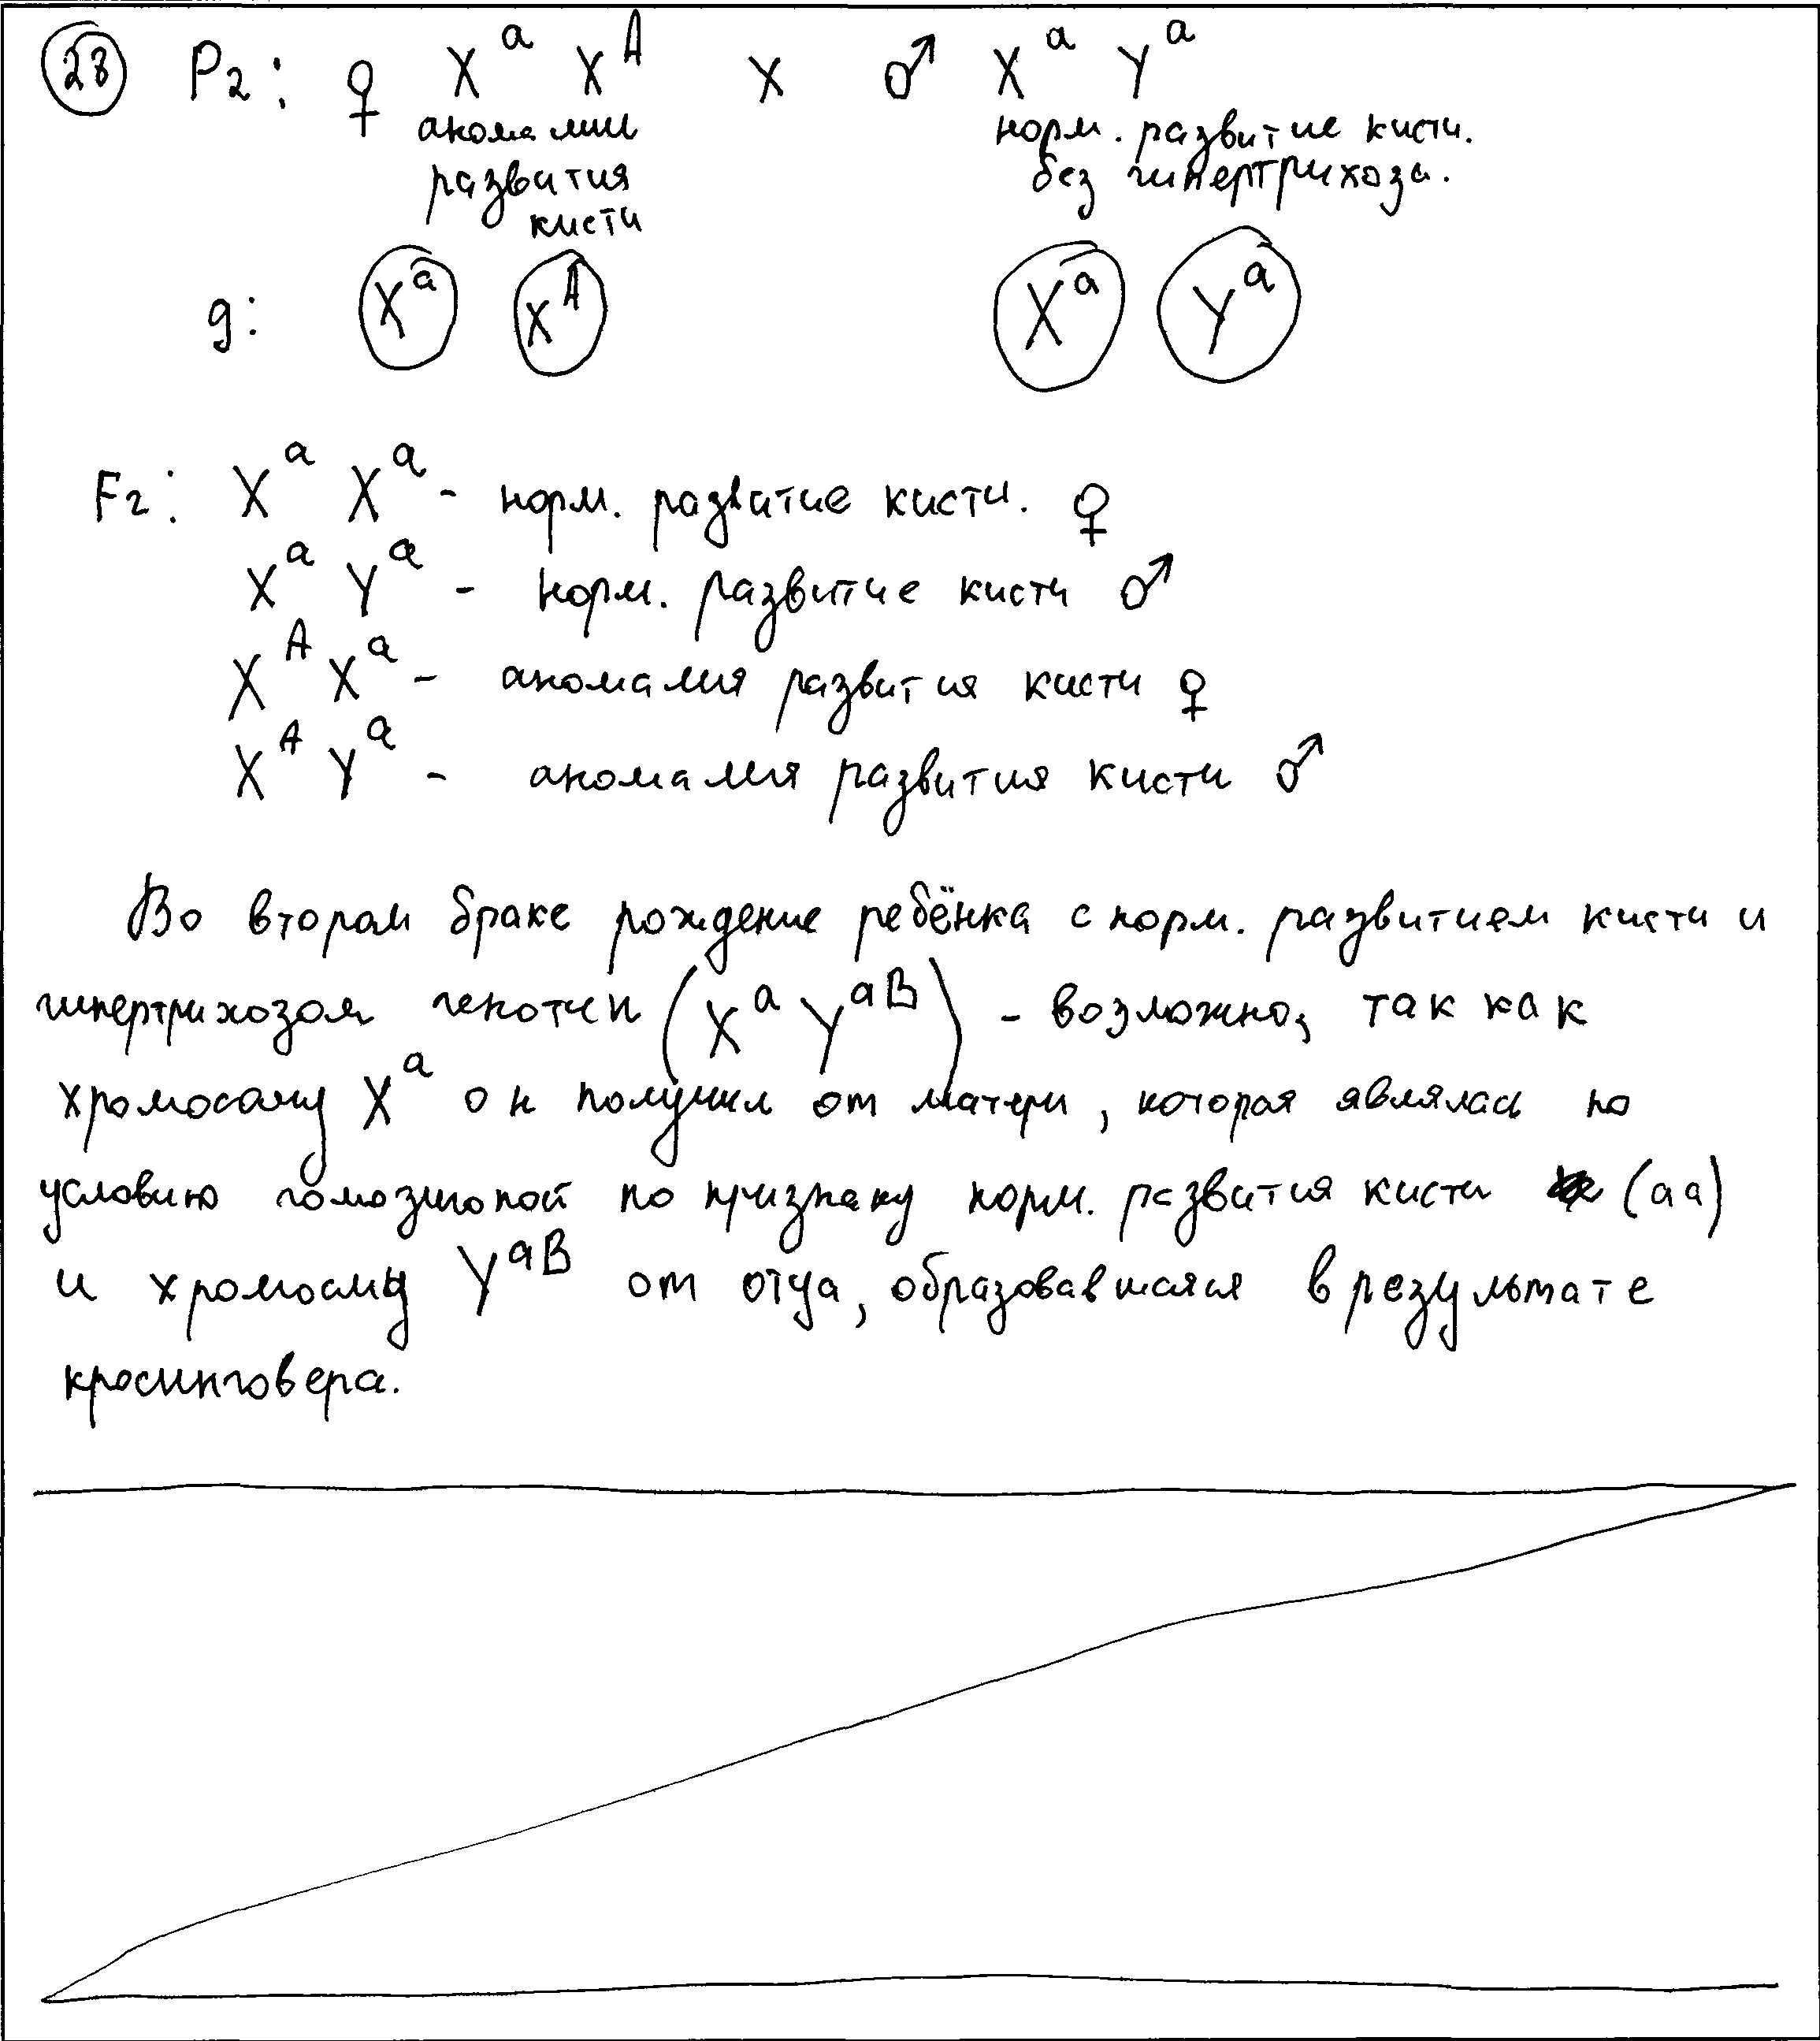 28 P2: ♀ X^a X^A x ♂ X^a Y^a
аномалии норм. развитие кисти.
развития без гипертрихоза.
кисти
g: X^a X^A X^a Y^a
F2: X^a X^a - норм. развитие кисти. ♀
X^a Y^a - норм. развитие кисти ♂
X^A X^a - аномалия развития кисти ♀
X^A Y^a - аномалия развития кисти ♂
Во втором браке рождение ребёнка с норм. развитием кисти и
гипертрихозом генотип (X^a Y^aB) - возможно, так как
хромосому X^a он получил от матери, которая являлась по
условию гомозиготой по признаку норм. развития кисти (aa)
и хромосму Y^aB от отца, образовавшаяся в результате
кросинговера.